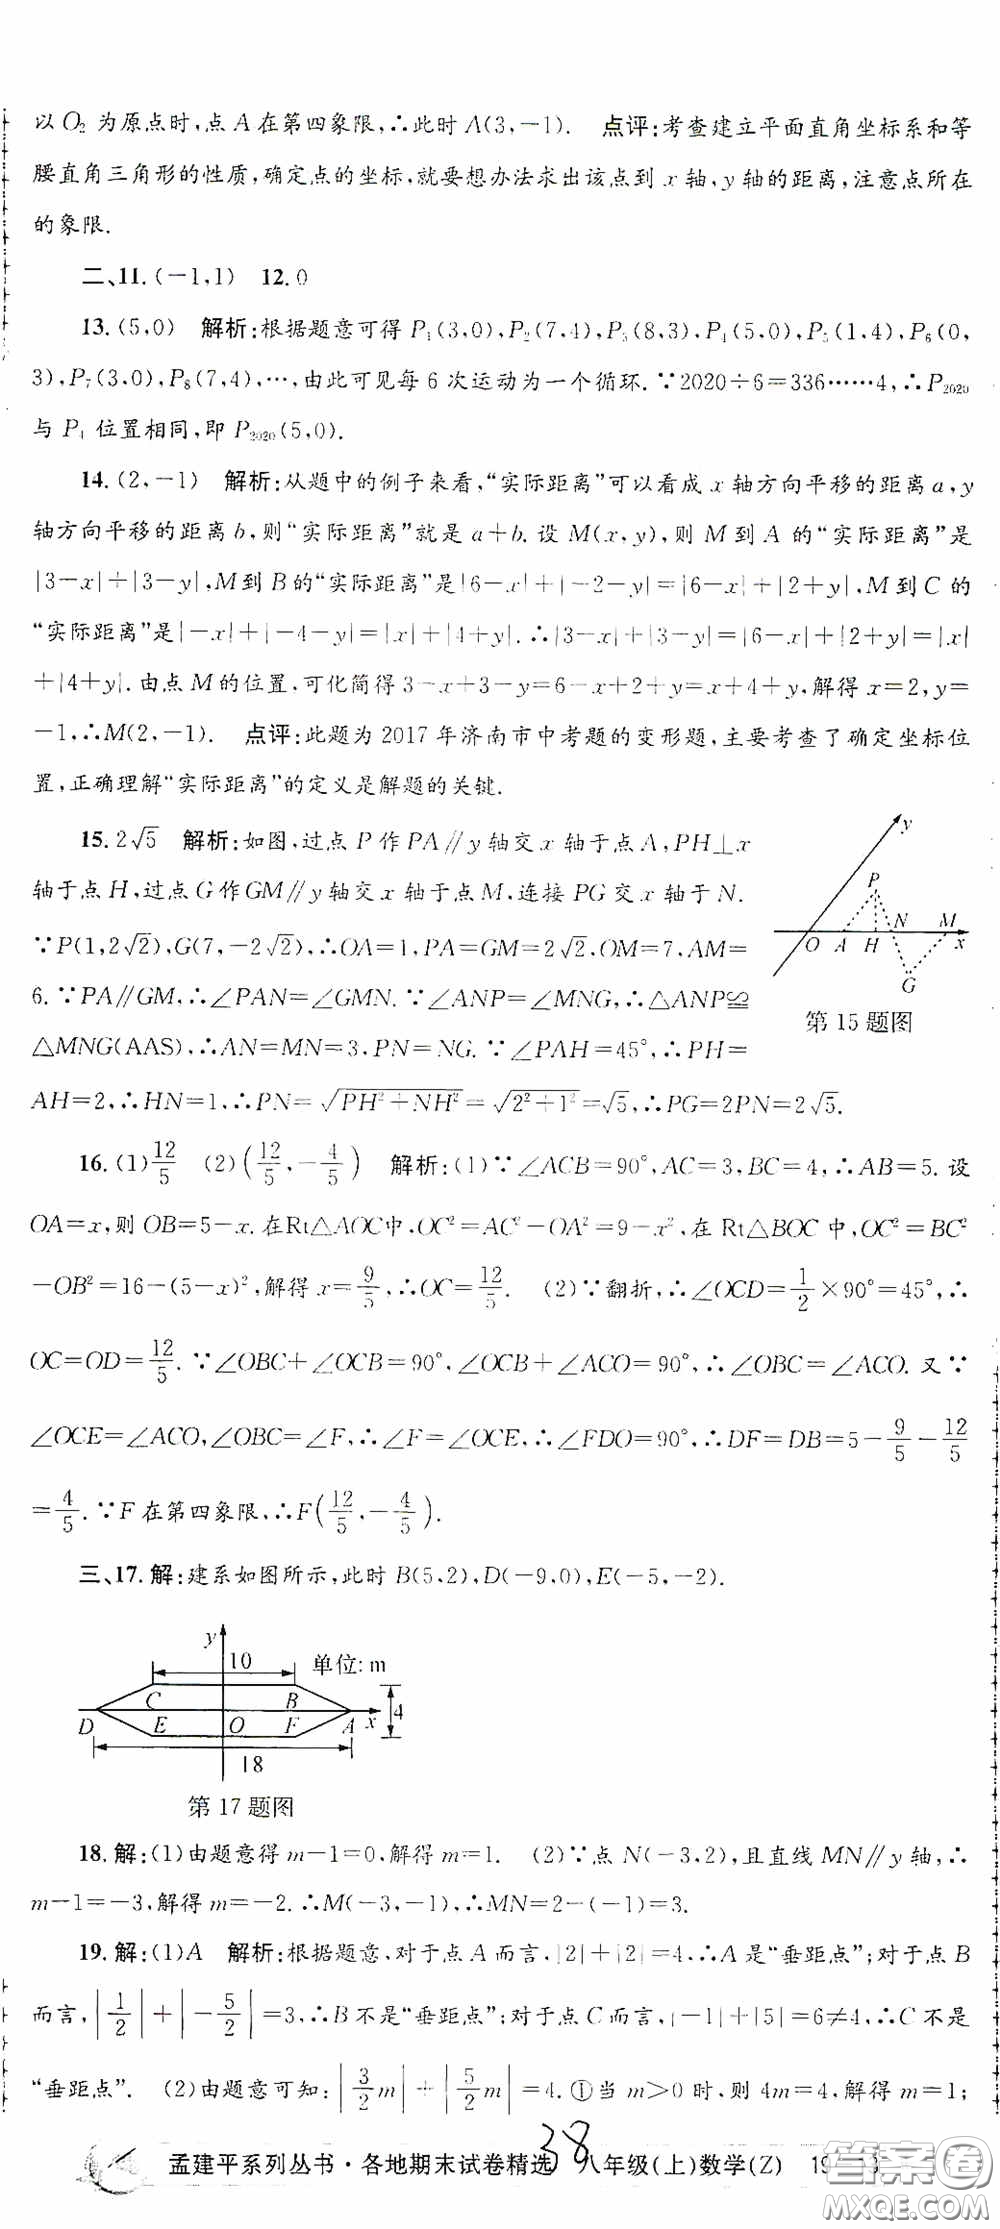 以 O₂ 为原点时,点 A 在第四象限,∴此时 A(3,-1). 点评:考查建立平面直角坐标系和等
腰直角三角形的性质,确定点的坐标,就要想办法求出该点到 x 轴,y 轴的距离,注意点所在
的象限.
二、11.(-1,1) 12.0
13.(5,0) 解析:根据题意可得 P₁(3,0),P₂(7,4),P₃(8,3),P₄(5,0),P₅(1,4),P₆(0,
3),P₇(3,0),P₈(7,4),…,由此可见每 6 次运动为一个循环.∵2020÷6=336……4,∴P₂₀₂₀
与 P₄ 位置相同,即 P₂₀₂₀(5,0).
14.(2,-1) 解析:从题中的例子来看,“实际距离”可以看成 x 轴方向平移的距离 a,y
轴方向平移的距离 b,则“实际距离”就是 a+b.设 M(x,y),则 M 到 A 的“实际距离”是
|3-x|+|3-y|,M 到 B 的“实际距离”是|6-x|+|-2-y|=|6-x|+|2+y|,M 到 C 的
“实际距离”是|-x|+|-4-y|=|x|+|4+y|.∴|3-x|+|3-y|=|6-x|+|2+y|=|x|
+|4+y|.由点 M 的位置,可化简得 3-x+3-y=6-x+2+y=x+4+y,解得 x=2,y=
-1,∴M(2,-1). 点评:此题为 2017 年济南市中考题的变形题,主要考查了确定坐标位
置,正确理解“实际距离”的定义是解题的关键.
15.2√5 解析:如图,过点 P 作 PA∥y 轴交 x 轴于点 A,PH⊥x
轴于点 H,过点 G 作 GM∥y 轴交 x 轴于点 M,连接 PG 交 x 轴于 N.
∵P(1,2√2),G(7,-2√2),∴OA=1,PA=GM=2√2.OM=7,AM=
6.∵PA∥GM,∴∠PAN=∠GMN.∵∠ANP=∠MNG,∴△ANP≌
△MNG(AAS),∴AN=MN=3.PN=NG.∵∠PAH=45°,∴PH=
AH=2,∴HN=1,∴PN=√(PH²+NH²)=√(2²+1²)=√5,∴PG=2PN=2√5.
y
P
N
M
O
A
H
x
G
第 15 题图
16.(1)12/5 (2)(12/5,-4/5) 解析:(1)∵∠ACB=90°,AC=3,BC=4,∴AB=5.设
OA=x,则 OB=5-x.在Rt△AOC中,OC²=AC²-OA²=9-x²,在 Rt△BOC 中,OC²=BC²
-OB²=16-(5-x)²,解得 x=9/5,∴OC=12/5. (2)∵翻折,∴∠OCD=1/2×90°=45°,∴
OC=OD=12/5.∵∠OBC+∠OCB=90°,∠OCB+∠ACO=90°,∴∠OBC=∠ACO.又∵
∠OCE=∠ACO,∠OBC=∠F,∴∠F=∠OCE,∴∠FDO=90°,∴DF=DB=5-9/5-12/5
=4/5.∵F 在第四象限,∴F(12/5,-4/5).
三、17.解:建系如图所示,此时 B(5,2),D(-9,0),E(-5,-2).
y
10
单位: m
C
B
4
D
E
O
F
A
x
18
第 17 题图
18.解:(1)由题意得 m-1=0,解得 m=1. (2)∵点 N(-3,2),且直线 MN∥y 轴,∴
m-1=-3,解得 m=-2.∴M(-3,-1),∴MN=2-(-1)=3.
19.解:(1)A 解析:根据题意,对于点 A 而言,|2|+|2|=4,∴A 是“垂距点”;对于点 B
而言,|1/2|+|-5/2|=3,∴B 不是“垂距点”;对于点 C 而言,|-1|+|5|=6≠4,∴C 不是
“垂距点”. (2)由题意可知:|3/2m|+|5/2m|=4.①当 m>0 时,则 4m=4,解得 m=1;
38
孟建平系列丛书·各地期末试卷精选 八年级(上)数学(Z)
答案圈
MXQE.COM